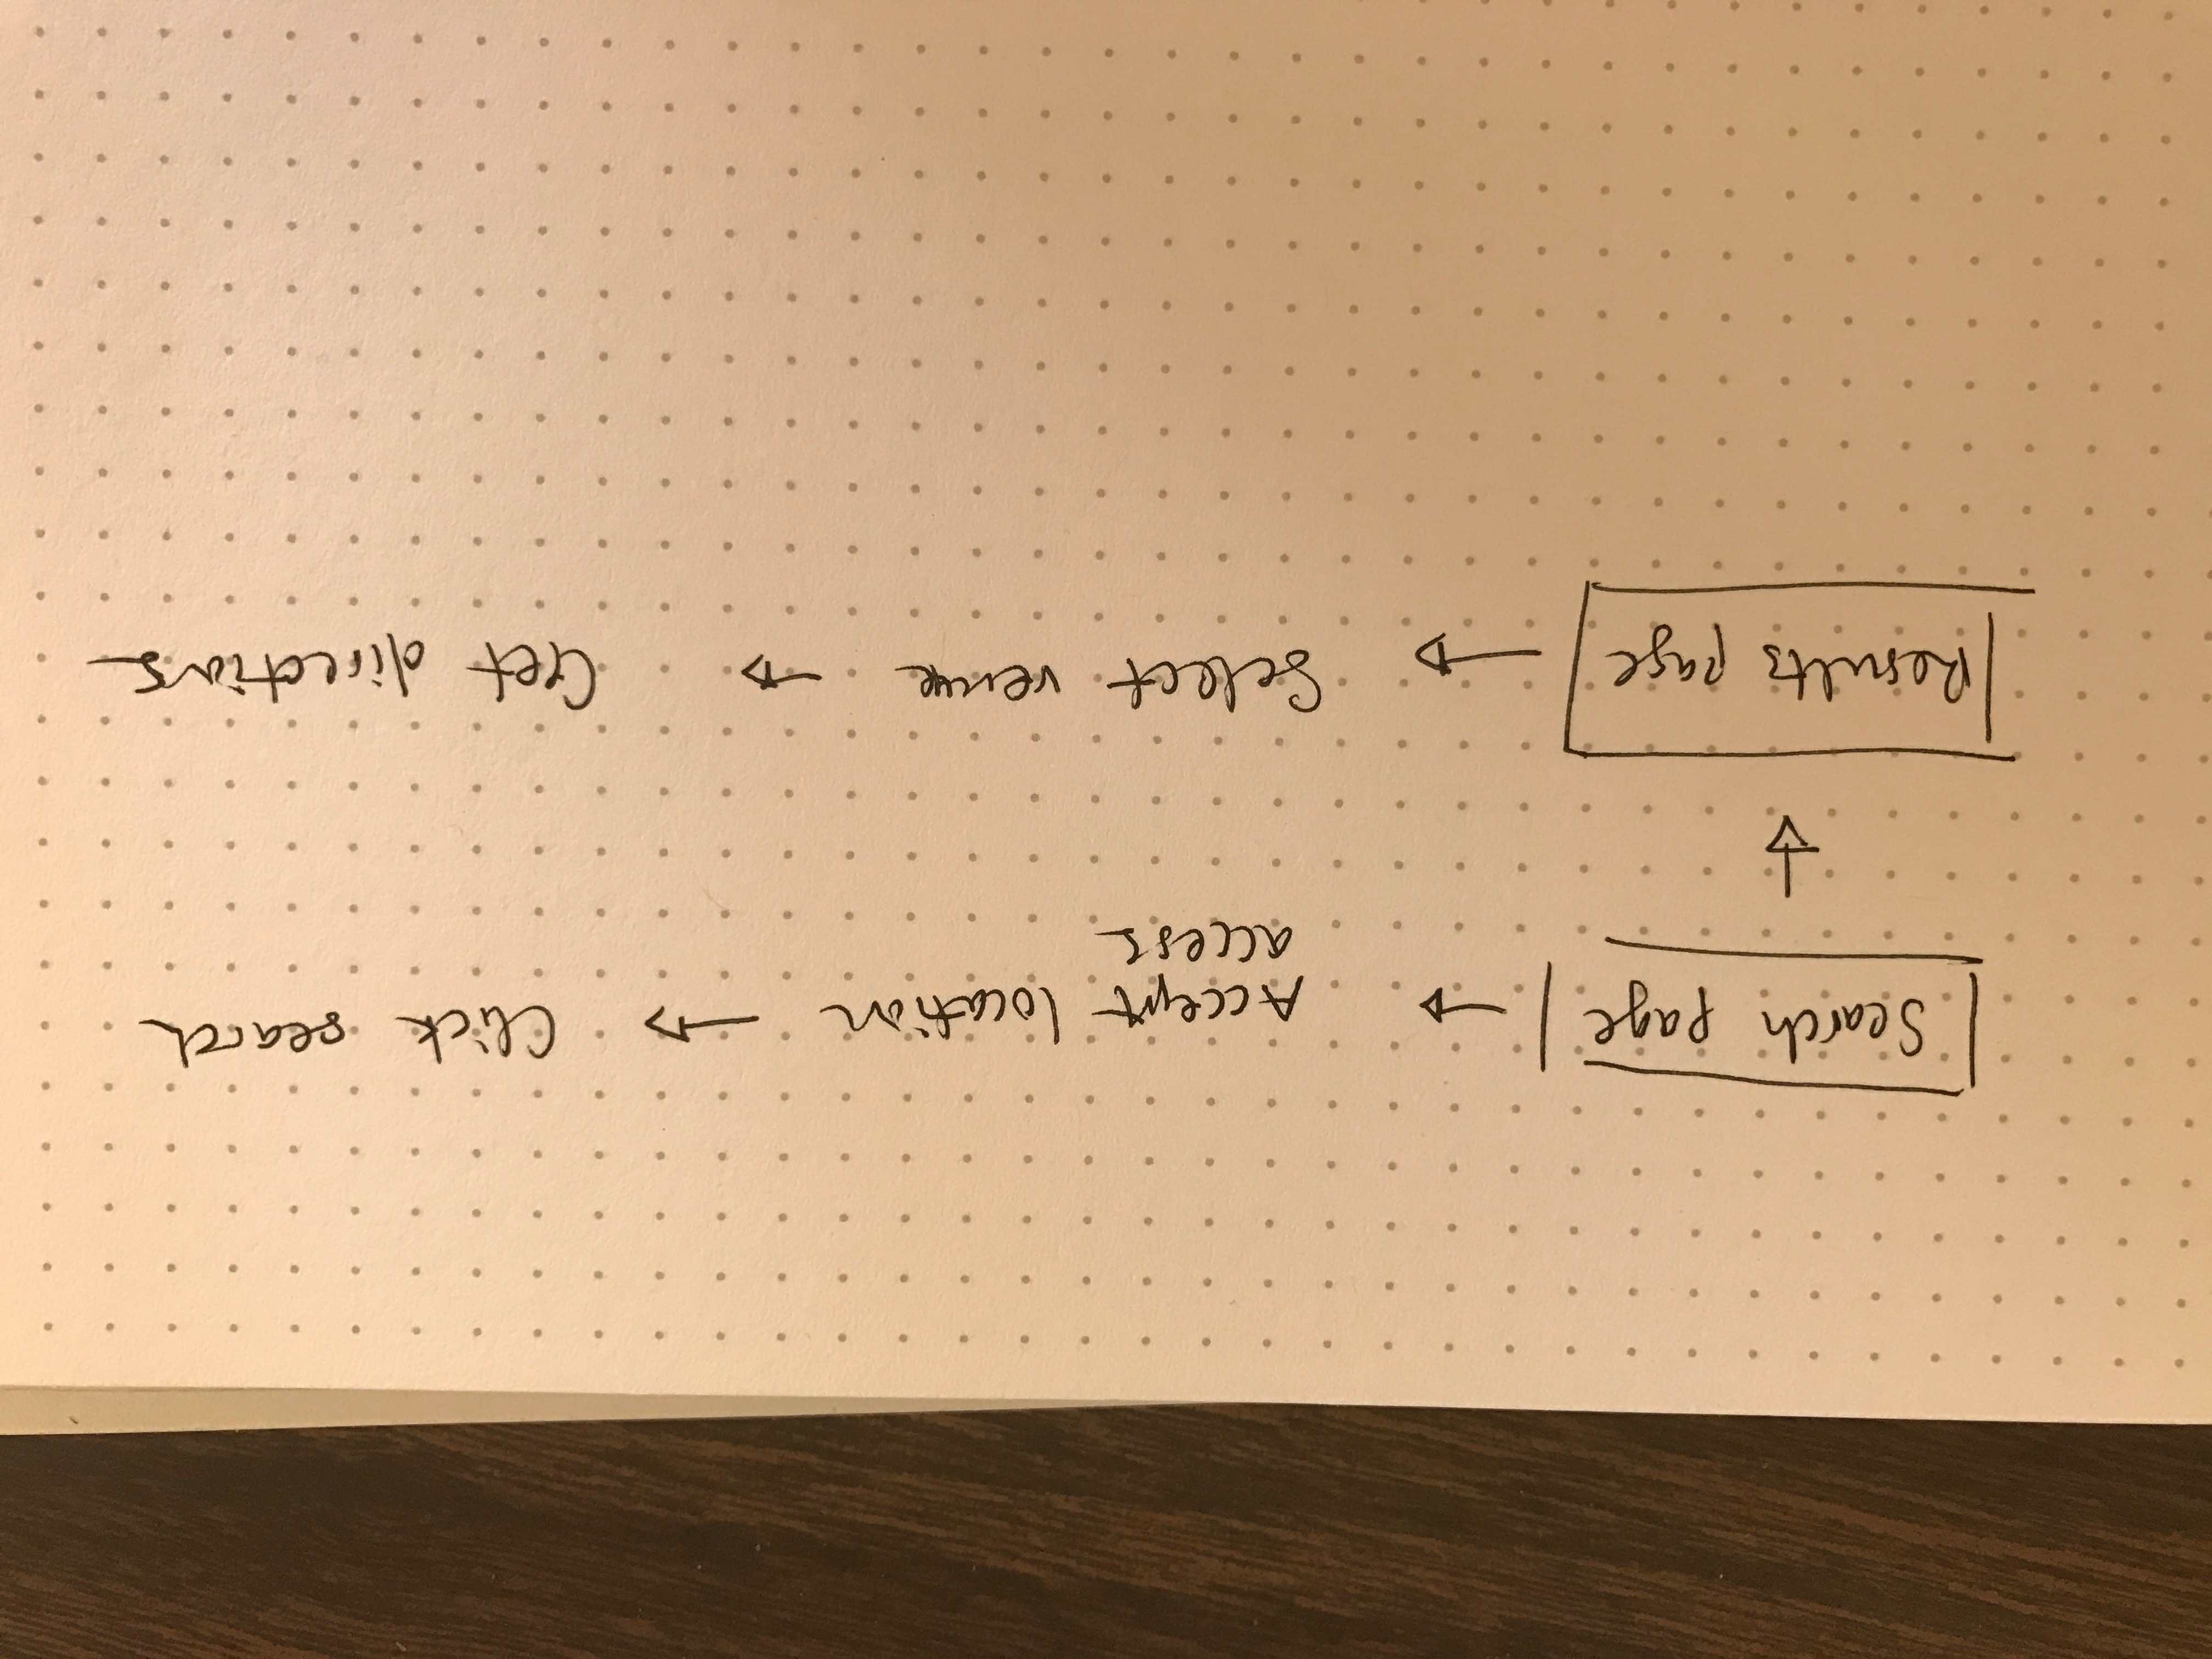 Search page → Accept location → Click search
access
↓
Results page → Select venue → Get directions